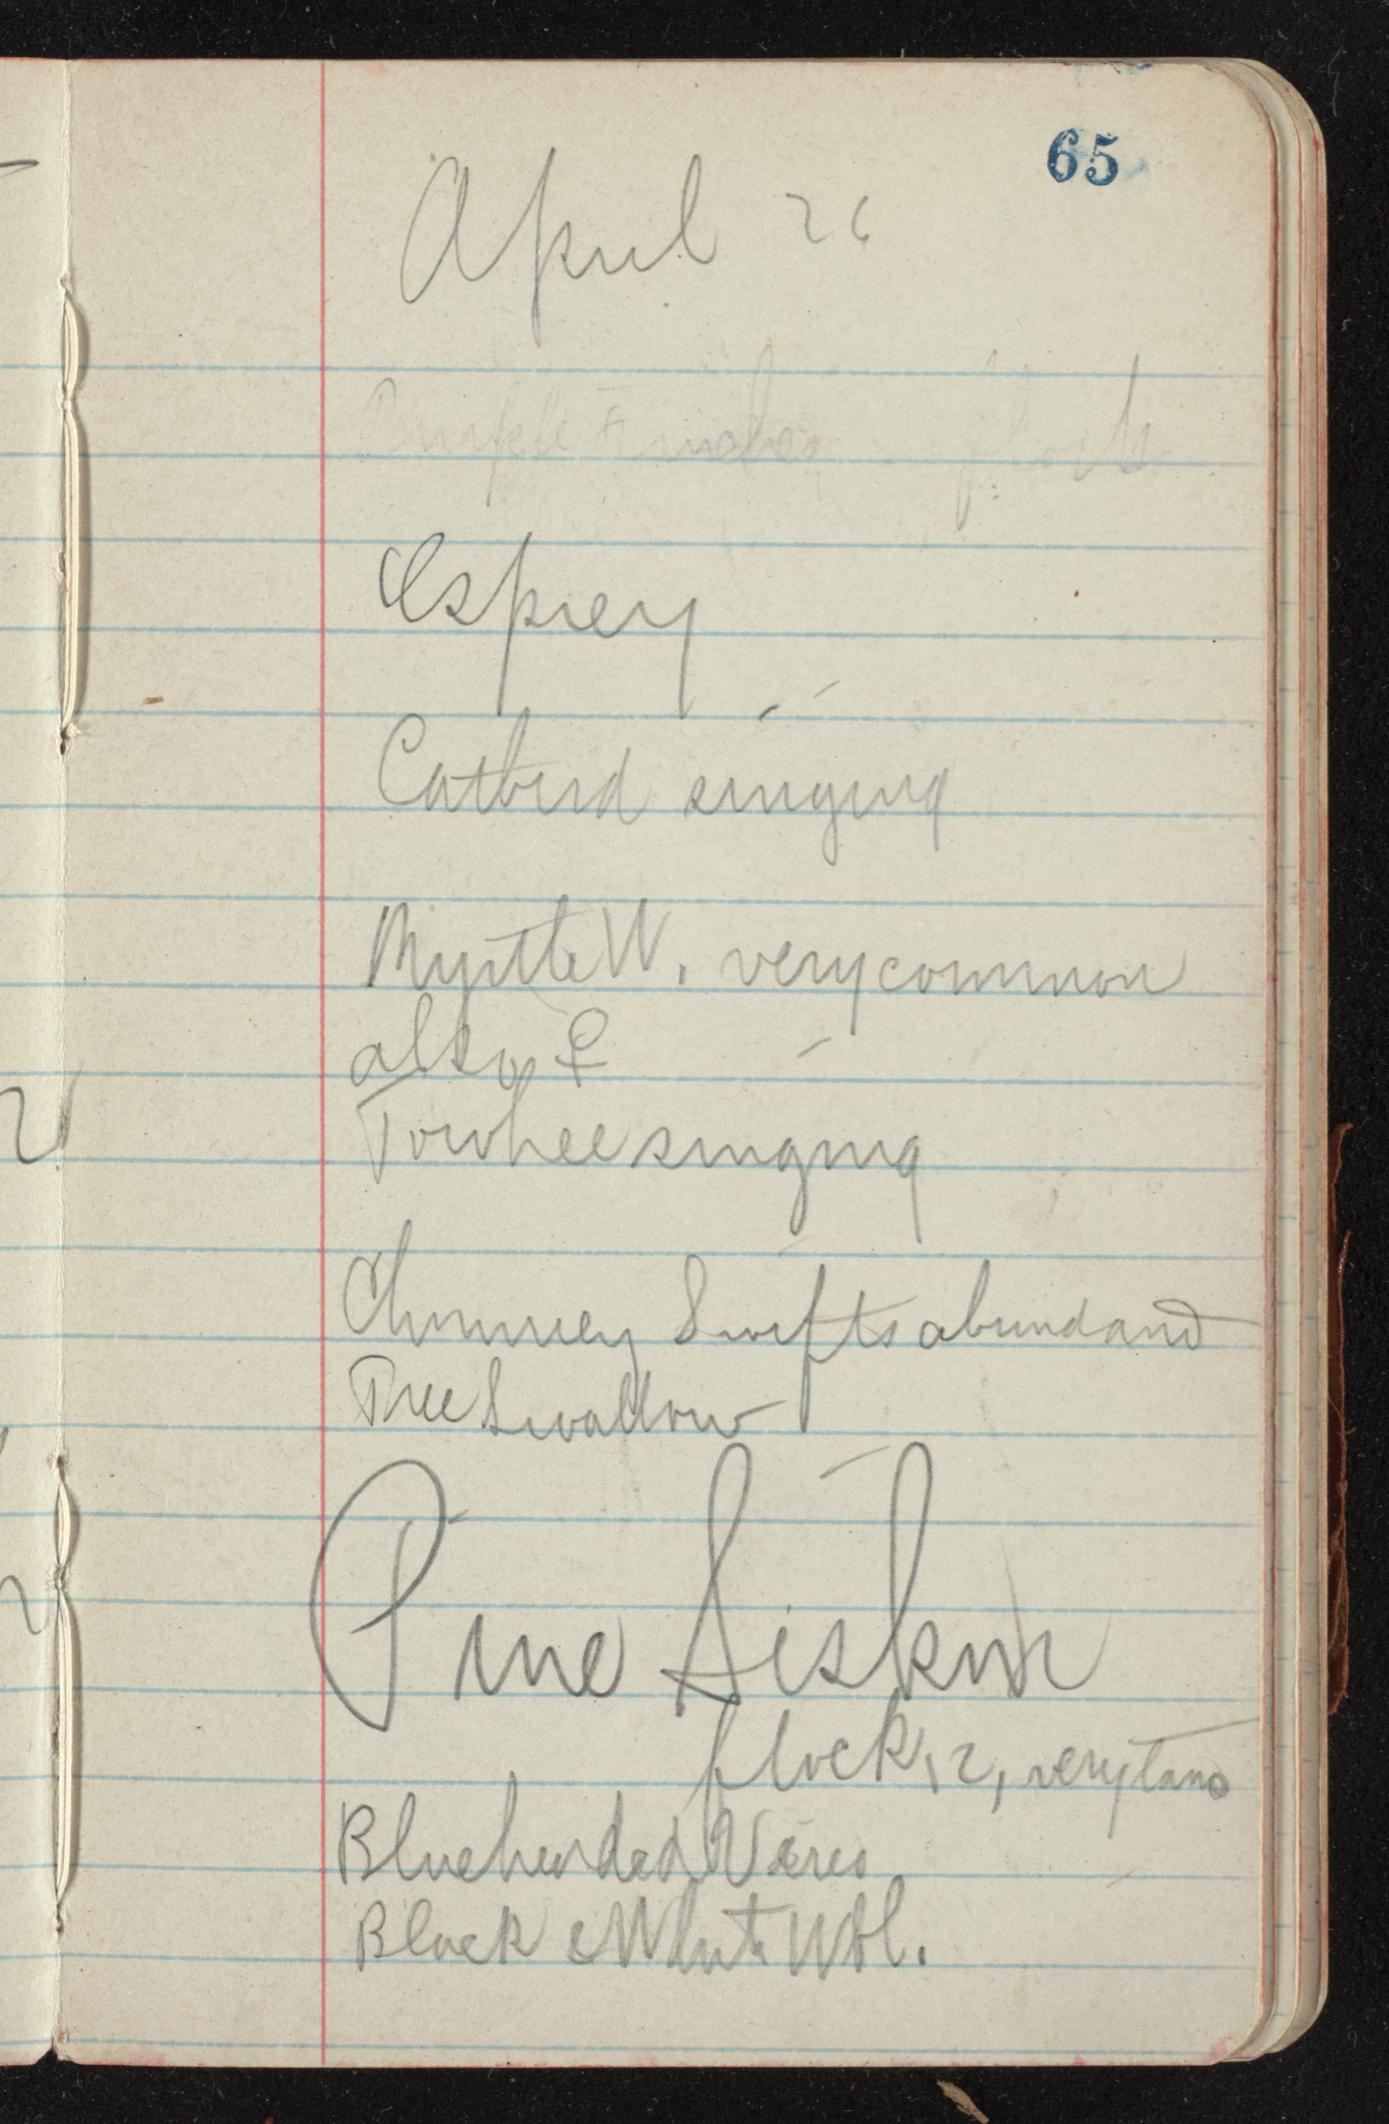 65
April 26
Purple Finches flock
Osprey
Catbird singing
Myrtle W. very common
also ♀
Towhee singing
Chimney Swifts abundant
Tree Swallow
Pine Siskin
flock 12, very tame
Blueheaded Vireo
Black & White Wbl.